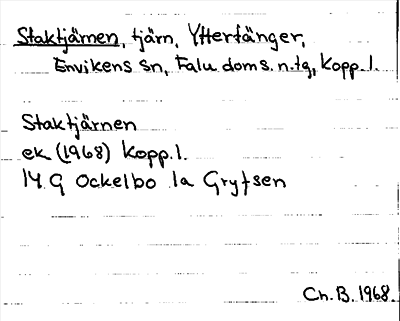 Staktjärnen, tjärn, Ytterfänger,
Envikens sn, Falu doms. n. tg, Kopp. l.
Staktjärnen
ek (1968) Kopp. l.
14 G Ockelbo 1a Grytsen
Ch. B. 1968.